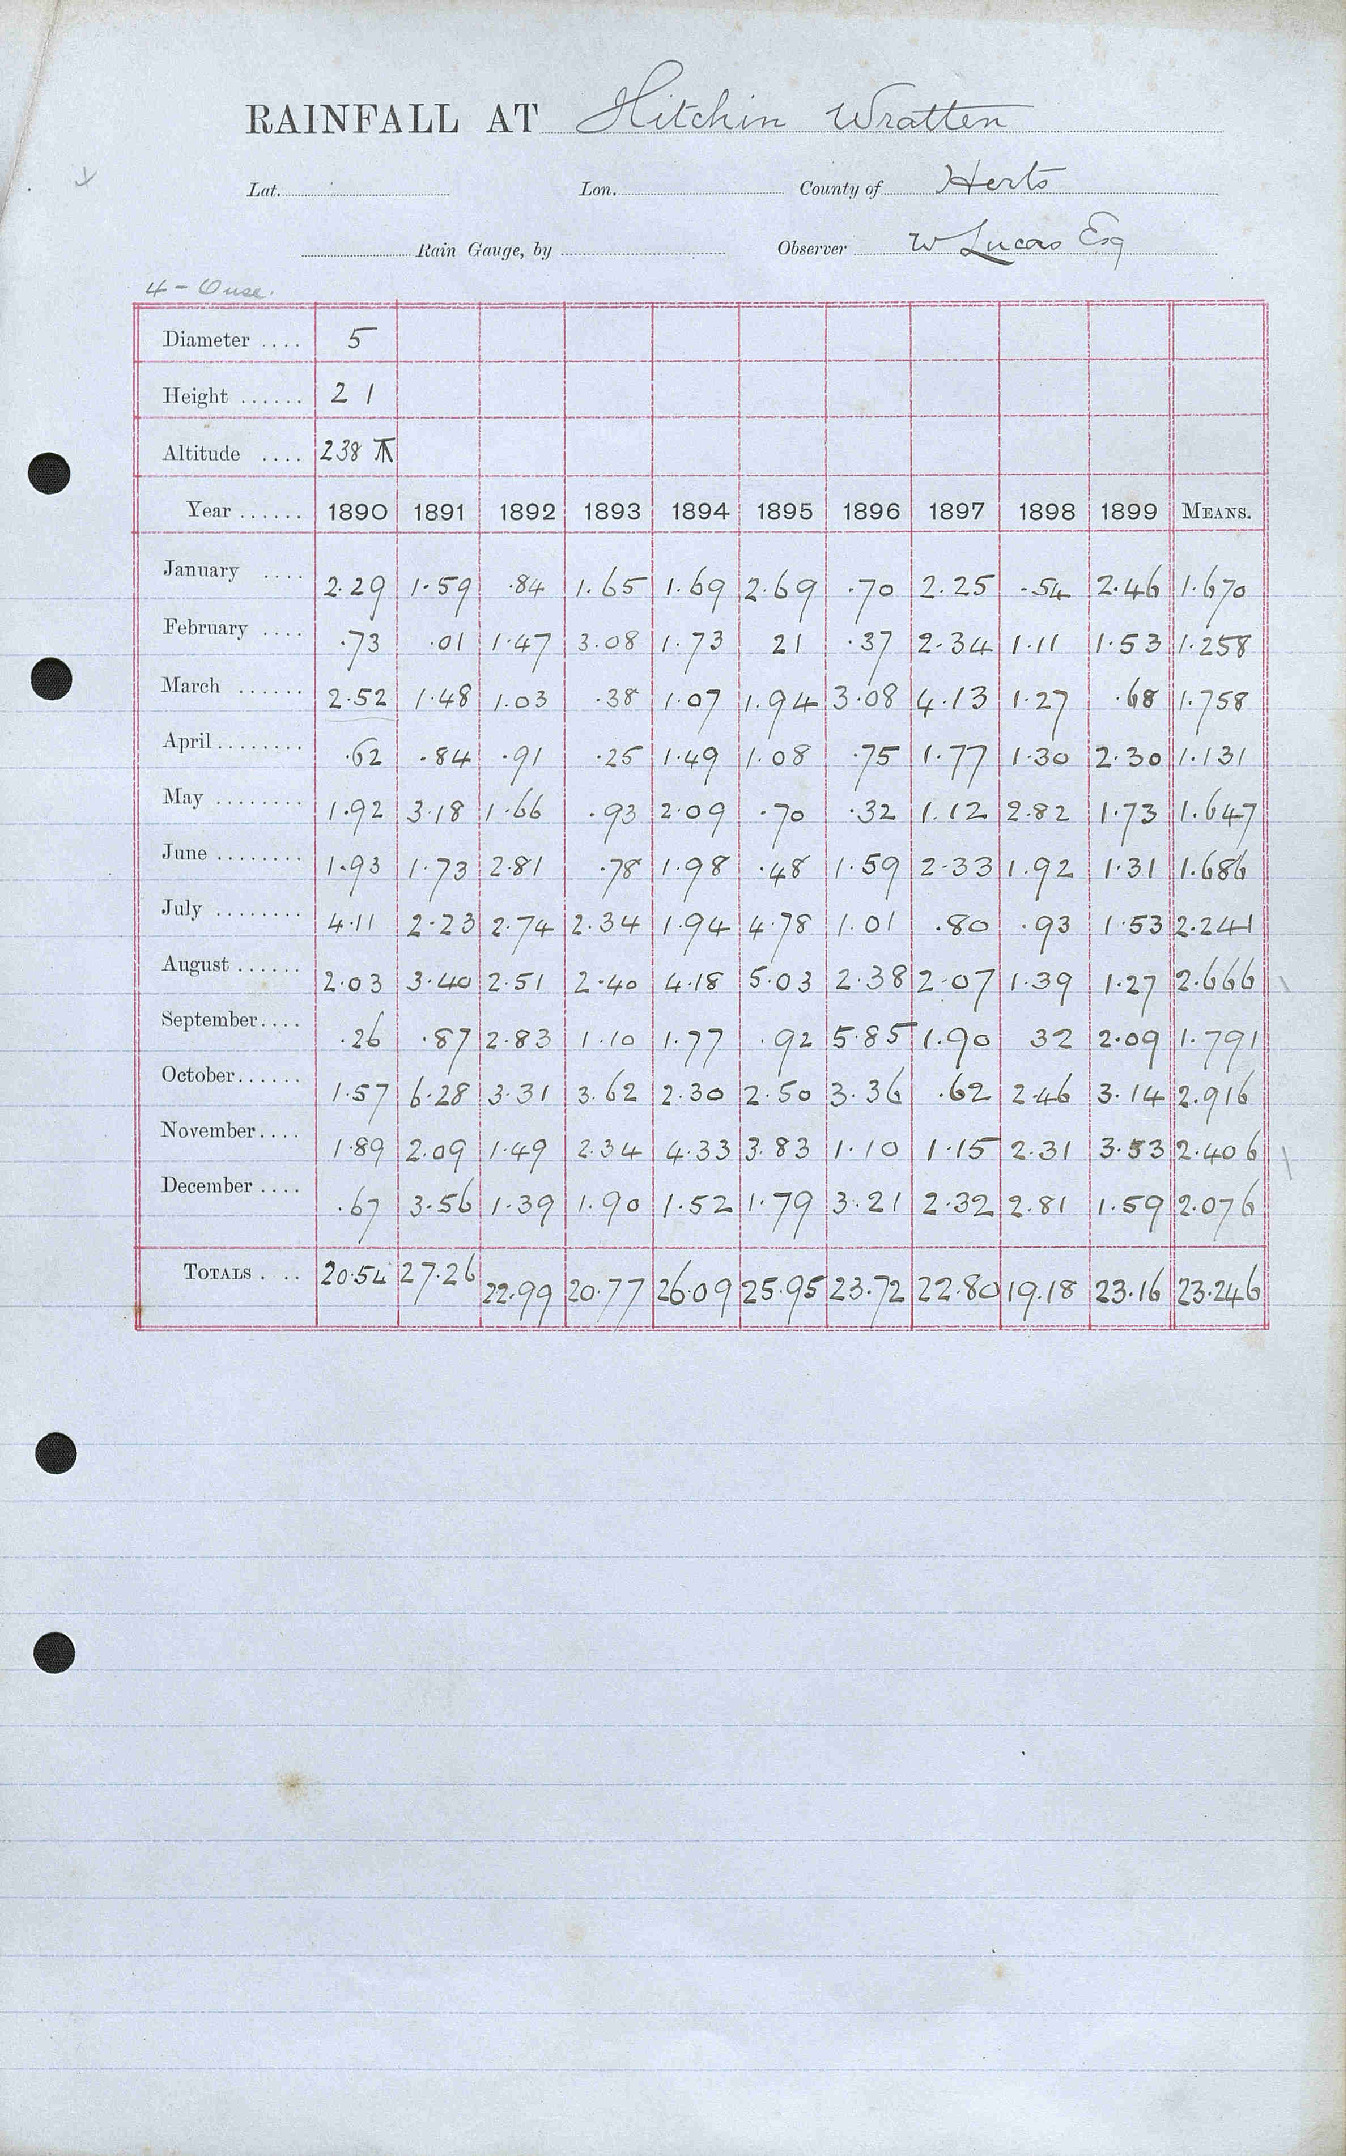 RAINFALL AT Hitchin Wratten
Lat. Lon. County of Herts
Rain Gauge, by Observer W Lucas Esq
4 - Ouse.
Diameter .... 5
Height ...... 2 1
Altitude .... 238
Year ...... 1890 1891 1892 1893 1894 1895 1896 1897 1898 1899 MEANS.
January .... 2.29 1.59 .84 1.65 1.69 2.69 .70 2.25 .54 2.46 1.670
February .... .73 .01 1.47 3.08 1.73 21 .37 2.34 1.11 1.53 1.258
March ...... 2.52 1.48 1.03 .38 1.07 1.94 3.08 4.13 1.27 .68 1.758
April ........ .62 .84 .91 .25 1.49 1.08 .75 1.77 1.30 2.30 1.131
May ........ 1.92 3.18 1.66 .93 2.09 .70 .32 1.12 2.82 1.73 1.647
June ........ 1.93 1.73 2.81 .78 1.98 .48 1.59 2.33 1.92 1.31 1.686
July ........ 4.11 2.23 2.74 2.34 1.94 4.78 1.01 .80 .93 1.53 2.241
August ...... 2.03 3.40 2.51 2.40 4.18 5.03 2.38 2.07 1.39 1.27 2.666
September.... .26 .87 2.83 1.10 1.77 .92 5.85 1.90 32 2.09 1.791
October...... 1.57 6.28 3.31 3.62 2.30 2.50 3.36 .62 2.46 3.14 2.916
November.... 1.89 2.09 1.49 2.34 4.33 3.83 1.10 1.15 2.31 3.53 2.406
December .... .67 3.56 1.39 1.90 1.52 1.79 3.21 2.32 2.81 1.59 2.076
TOTALS .... 20.54 27.26 22.99 20.77 26.09 25.95 23.72 22.80 19.18 23.16 23.246